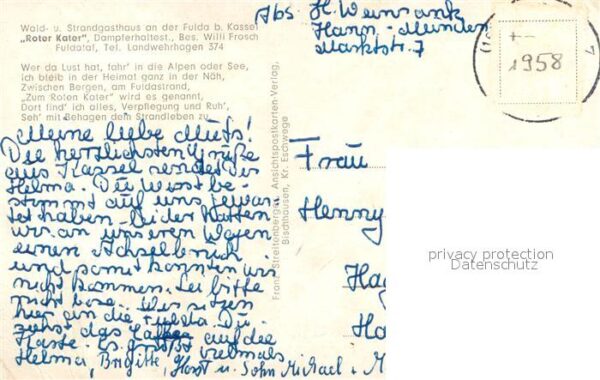 Wald- u. Strandgasthaus an der Fulda b. Kassel
„Roter Kater", Dampferhaltest., Bes. Willi Frosch
Fuldatal, Tel. Landwehrhagen 374
Wer da Lust hat, fahr' in die Alpen oder See,
ich bleib in der Heimat ganz in der Näh,
Zwischen Bergen, am Fuldastrand,
„Zum Roten Kater" wird es genannt,
Dort find' ich alles, Verpflegung und Ruh',
Seh' mit Behagen dem Strandleben zu.
Abs. H. Weinrank
Hann.-Münden
Marktstr. 7
1958
Meine liebe Mutti!
Die herzlichsten Grüße
aus Kassel sendet Dir
Helma. Du wirst be-
stimmt auf uns gewar-
tet haben. Leider hatten
wir an unserem Wagen
einen Achselbruch
und somit konnten wir
nicht kommen. Sei bitte
nicht böse. Wir sitzen
hier an die Fulda. Du
siehst das auf die
Karte. Es grüßt vielmals
Helma, Brigitte, Horst u. Sohn Michael + M
Franz Streitenberger, Ansichtspostkarten-Verlag,
Bischhausen, Kr. Eschwege
Frau
Henny
Hag
Ha
privacy protection
Datenschutz